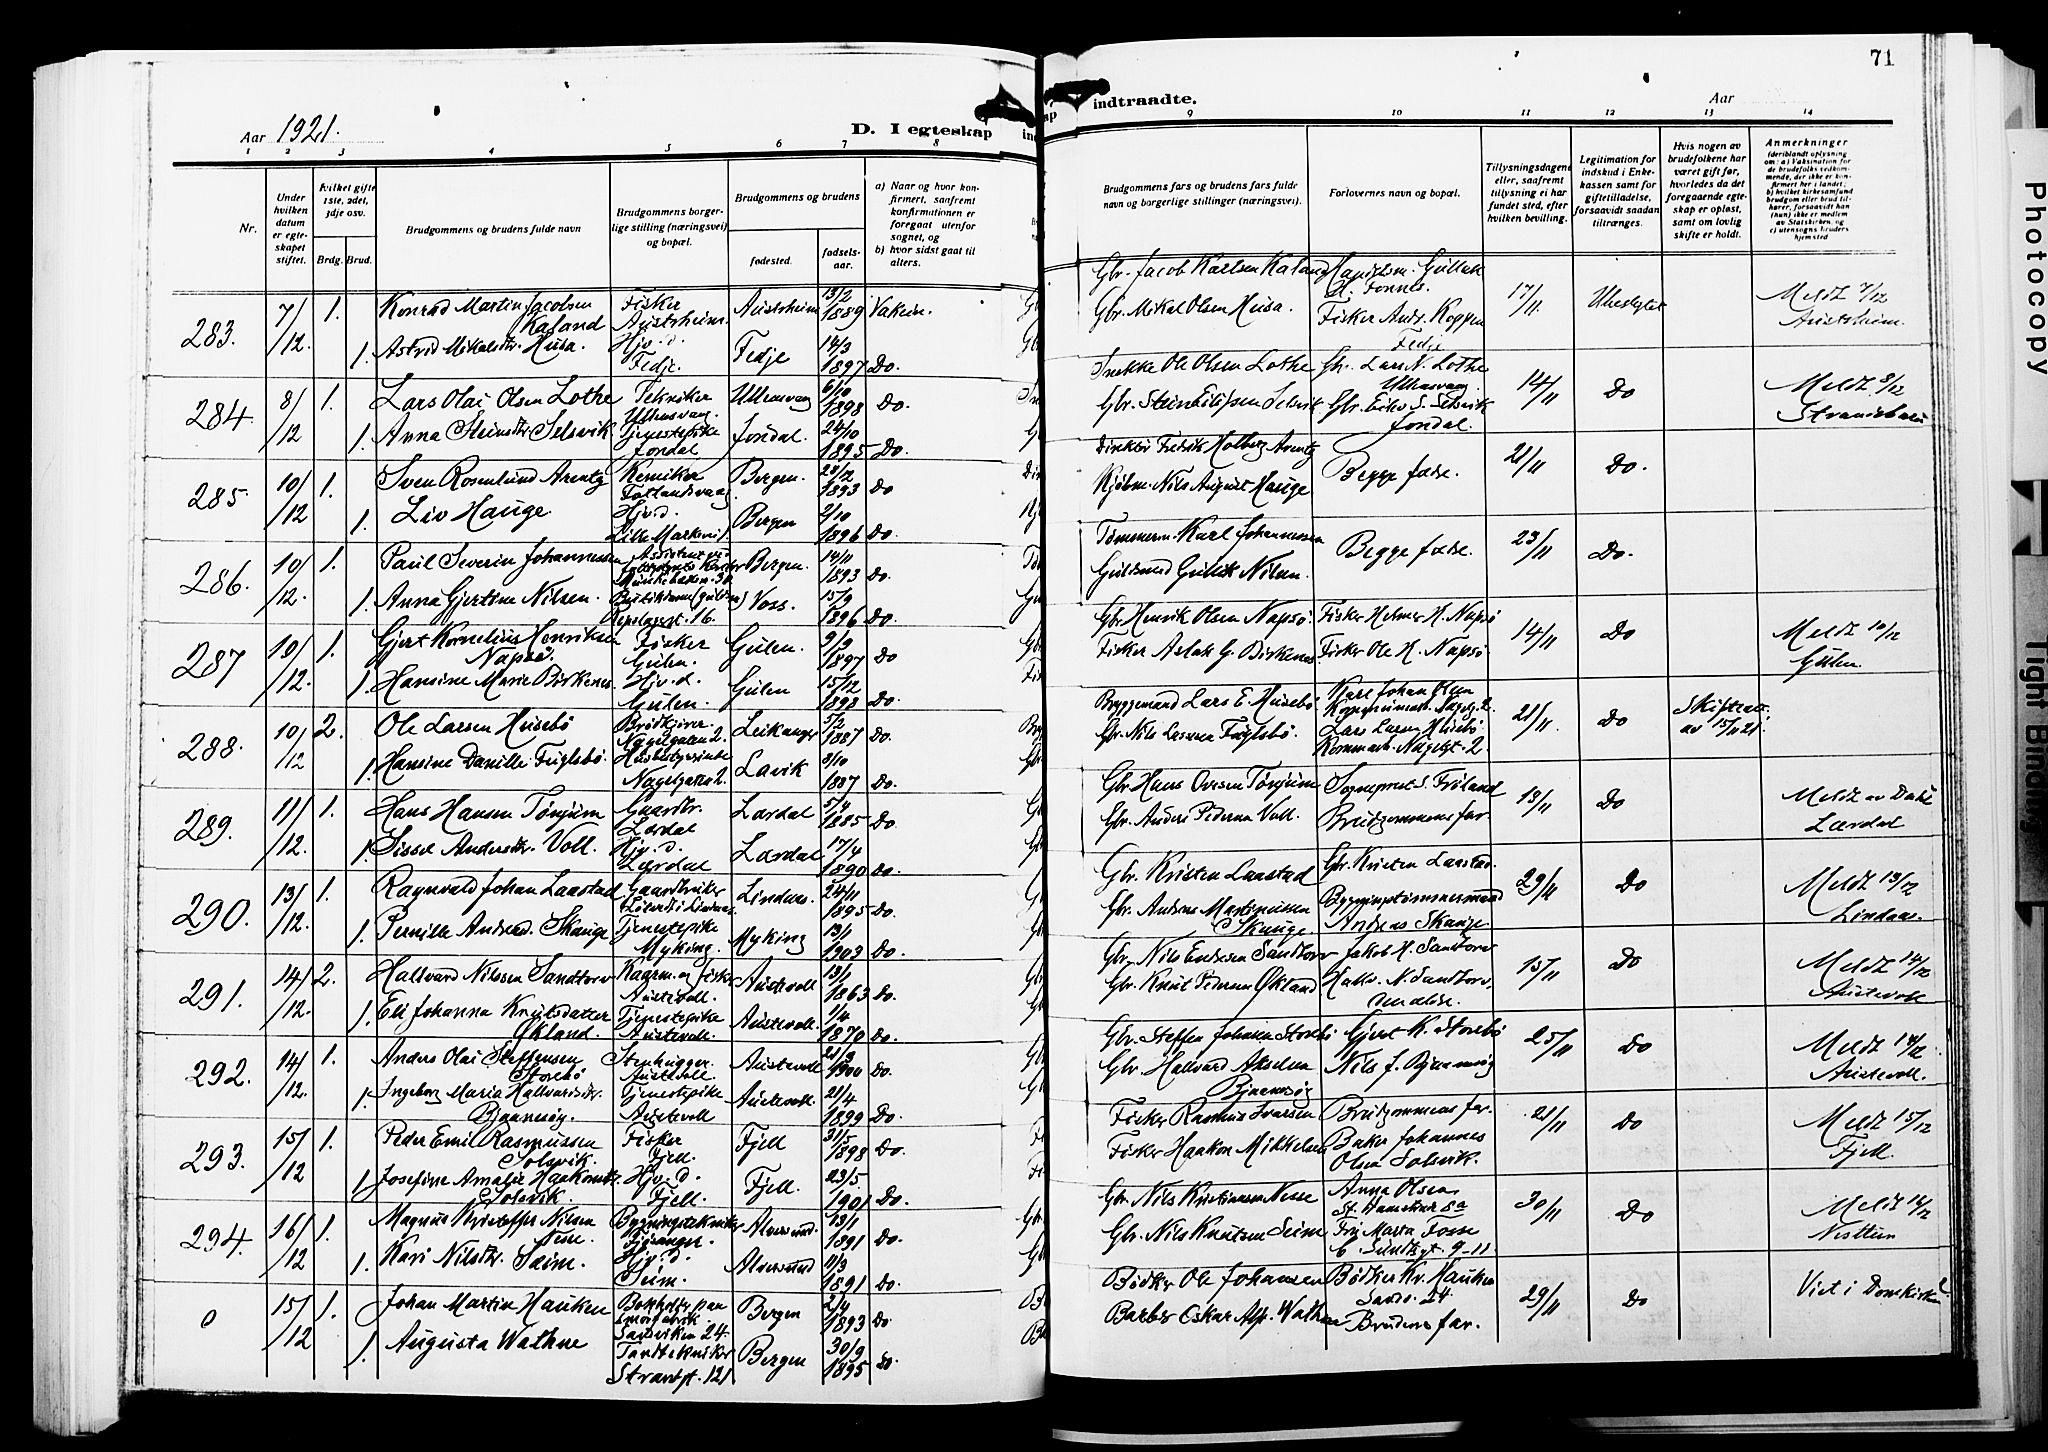 71
Aar 1921.
D. I egteskap
indtraadte.
Aar
1 2 3 4 5 6 7 8
9 10 11 12 13 14
Nr.
Under hvilken datum er egteskapet stiftet.
hvilket gifte 1ste, 2det, 3dje osv.
Brdg. Brud.
Brudgommens og brudens fulde navn
Brudgommens borgerlige stilling (næringsvei) og bopæl.
Brudgommens og brudens
fødested. fødselsaar.
a) Naar og hvor konfirmert, saafremt konfirmationen er foregaat utenfor sognet, og
b) hvor sidst gaat til alters.
Brudgommens fars og brudens fars fulde navn og borgerlige stillinger (næringsvei).
Forlovernes navn og bopæl.
Tillysningsdagene eller, saafremt tillysning ei har fundet sted, efter hvilken bevilling.
Legitimation for indskud i Enkekassen samt for giftetilladelse, forsaavidt saadan tiltrænges.
Hvis nogen av brudefolkene har været gift før, hvorledes da det foregaaende egteskap er opløst, samt om lovlig skifte er holdt.
Anmerkninger
(deriblandt oplysning om: a) Vaksination for de brudefolks vedkommende, der ikke er konfirmert her i landet; b) hvilket kirkesamfund brudgom eller brud tilhører, forsaavidt han (hun) ikke er medlem av Statskirken, og c) utensogns bruders hjemsted
283. 7/12 1. Konrad Martin Jacobsen Kaland Fisker Austrheim. Austrheim 13/2 1889 Vaksin. Gbr. Jacob Karlsen Kaland 17/11. Ubeskyttet Meldt 7/12 Austrheim.
1. Astrid Mikalsdtr. Husa. Hjv. d. Fedje. Fedje 14/3 1897 Do. Gbr. Mikal Olsen Husa. Fisker Andr. Koppen Fedje
284. 8/12 1. Lars Olai Olsen Lothe Tekniker Ullensvang. Ullensvang 6/10 1898 Do. Ole Olsen Lothe Gbr. Lars N. Lothe Ullensvang 14/11 Do Meldt 8/12
1. Anna Steinsdtr. Selsvik Tjenestepike Jondal Jondal. 24/10 1895 Do. Jondal.
285. 10/12 1. Sven Rosenlund Arentz Kemiker Bergen. 1893 Do Direktør Fredrik Holberg Arentz Begge fædre. 21/11 Do.
1. Liv Hauge Hjv. d. Lille Markevei 1. Bergen 2/10 1896 Do Kjøbm. Nils August Hauge
286. 10/12. 1. Paul Severin Johannessen Bergen. 14/11 1893 Do. Tømmerm. Karl Johannessen Begge fædre. 23/11 Do.
1. Anna Gjertine Nilsen. Voss. 15/9 1896 Do. Guldsmed Gullik Nilsen.
287 10/12. 1. Gjert Kornelius Henriksen Napsø. Fisker Gulen. Gulen. 9/9 1897 Do Gbr. Henrik Olsen Napsø. Fisker Helmer H. Napsø 14/11 Do Meldt 10/12 Gulen.
1. Hansine Marie Birkenes. Hjv. d. Gulen. Gulen 15/12 1898 Do. Fisker Aslak G. Birkenes. Fisker Ole H. Napsø.
288. 10/12 2. Ole Larsen Husebø Brødkjører Nagelgaten 2. Leikanger 5/2 1887 Do. Bryggemand Lars E. Husebø Karl Johan Olsen 21/11 Do Skifteatt. av 15/11 21.
1. Hansine Danille Fuglsbø. Husbestyrerinde Nagelgaten 2. Lavik 1887 Do. Gbr. Nils Larsen Fuglsbø. Lars Larsen Husebø Nagelgt. 2.
289. 11/12. 1. Hans Hansen Tønjum Gaardbr. Lærdal Lærdal 5/9 1885 Do. Gbr. Hans Ovesen Tønjum Sogneprest S. Frøland 13/11 Do Meldt av Dahl Lærdal
1. Sissel Andersdtr. Voll. Hjv. d. Lærdal Lærdal 17/4 1890 Do. Gbr. Anders Pedersen Voll. Brudgommens far.
290. 13/12. 1. Ragnvald Johan Laastad Gaardbruker Lindaas. 24/11 1895 Do. Gbr. Kristen Laastad Gbr. Kristen Laastad. 29/11 Do Meldt 13/12 Lindaas.
1. Pernille Andrsd. Skauge Tjenestepike Myking. Myking 13/1 1903 Do. Gbr. Andreas Martinussen Skauge Bygningstømmermand Andreas Skauge.
291. 14/12. 2. Hallvard Nilssen Sandtorv Kaarm. og fisker Austevoll. Austevoll 13/1 1863 Do. Gbr. Nils Endresen Sandtorv Jakob H. Sandtorv 15/11 Do Meldt 14/12 Austevoll
1. Eli Johanna Knutsdatter Økland. Tjenestepike Austevoll. Austevoll. 1/4 1870 Do. Gbr. Knut Pedersen Økland Hallv. N. Sandtorv,
292. 14/12. 1. Anders Olai Steffensen Storebø Stenhugger Austevoll. Austevoll 1900 Do. Gbr. Steffen Johansen Storebø Gjert K. Storebø 25/11 Do Meldt 14/12 Austevoll.
1. Ingeborg Maria Hallvardsdtr. Bjaanesøy. Tjenestepike Austevoll Austevoll. 21/4 1899 Do. Gbr. Hallvard Akselsen Bjaanesøy Nils J. Bjaanesøy
293. 15/12 1. Peder Emil Rasmussen Solsvik. Fisker Fjell. Fjell 31/5 1898 Do. Fisker Rasmus Ivarsen Brudgommens far. 21/11 Do Meldt 15/12 Fjell.
1. Josefine Amalie Haakonsdtr. Solsvik. Hjv. d. Fjell. Fjell. 23/5. 1901 Do. Fisker Haakon Mikkelsen Baker Johannes Olsen Solsvik.
294. 16/12 1. Magnus Kristoffer Nilsen Bygningstekniker Alversund. 13/1 1891 Do. Gbr. Nils Kristiansen Anna Olsen, 30/11 Do Meldt 16/12 Nesttun
1. Kari Nilsdtr. Seim. Hjv. d. Seim. Alversund 11/3 1891 Do. Gbr. Nils Knutsen Seim Frk. Marta Fosse C. Sundtsgt. 9-11
0 15/12 1. Johan Martin Hauken Sandviken 24. Bergen 2/4 1893 Do. Bødker Ole Johansen Bødker Kr. Hauken Sandv. 24. 29/11 Do Viet i Domkirken
1. Augusta Wathne Tandtekniker Strandgt. 121 Bergen 30/9 1895 Do. Barber Oskar Alf. Wathne Brudens far.
Photocopy
Tight Binding